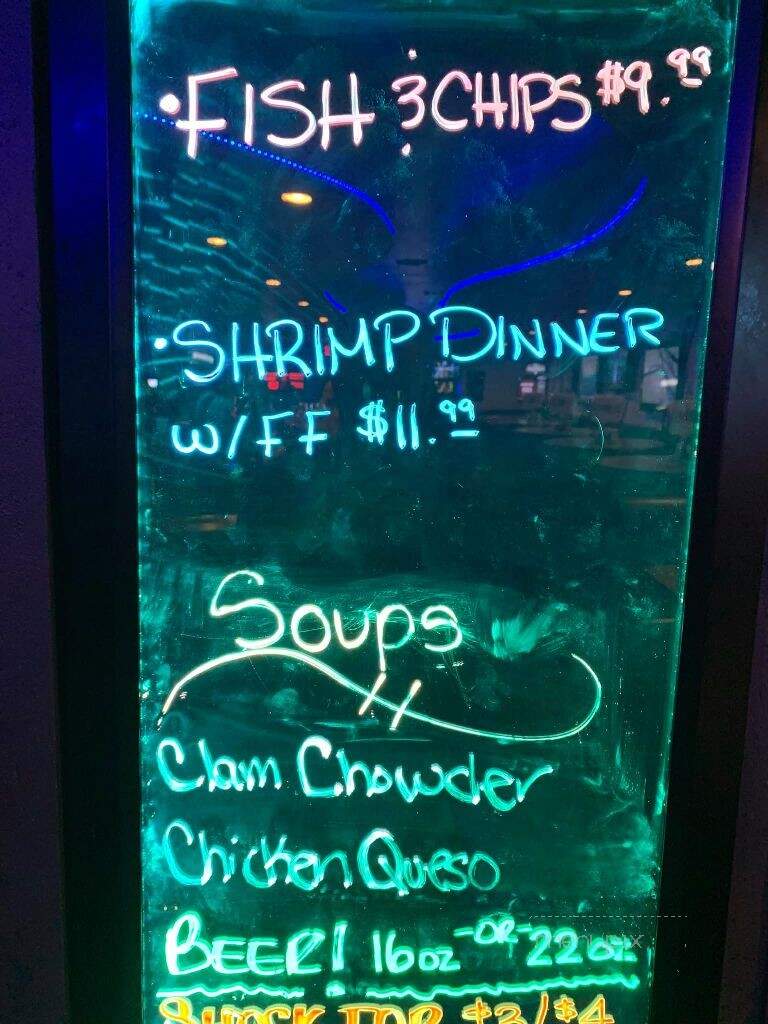 • FISH & CHIPS $9.99
• SHRIMP DINNER
W/FF $11.99
Soups
Clam Chowder
Chicken Queso
BEER! 16oz -OR- 22oz
SHOCK TOP $3/$4